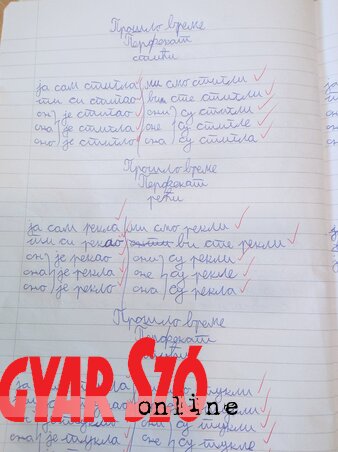 Прошло време
Перфекат
стићи
ја сам стигла ми смо стигли
ти си стигао ви сте стигли
он је стигао они су стигли
она је стигла оне су стигле
оно је стигло она су стигла
Прошло време
Перфекат
рећи
ја сам рекла ми смо рекли
ти си рекао ви сте рекли
он је рекао они су рекли
она је рекла оне су рекле
оно је рекло она су рекла
Прошло време
Перфекат
GYAR SZÓ
online
су тукли
она је тукла оне су тукле